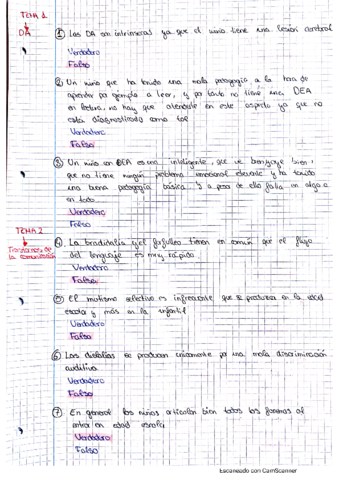 TEMA 1
DA
① Las DA son intrínsecas ya que el niño tiene una lesión cerebral
Verdadero
Falso
② Un niño que ha tenido una mala pedagogía a la hora de
aprender por ejemplo a leer, y por tanto no tiene una DEA
en lectura, no hay que atenderle en este aspecto ya que no
está diagnosticado como tal
Verdadero
Falso
③ Un niño con DEA es una inteligente, que ve bien, oye bien,
que no tiene ningún problema emocional elevado y ha tenido
una buena pedagogía básica. Y a pesar de ello falla en algo o
en todo
Verdadero
Falso
TEMA 2
Trastornos de
la comunicación
④ La bradilalia y el farfulleo tienen en común que el flujo
del lenguaje es muy rápido
Verdadero
Falso
⑤ El mutismo selectivo es infrecuente que se produzca en la edad
escolar y más en la infantil
Verdadero
Falso
⑥ Las dislalias se producen únicamente por una mala discriminación
auditiva
Verdadero
Falso
⑦ En general los niños articulan bien todos los fonemas al
entrar en edad escolar
Verdadero
Falso
Escaneado con CamScanner